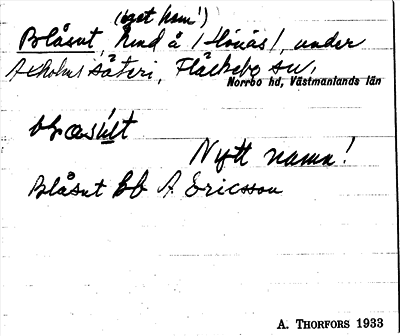 (eget hem!)
Blåsut, hmd å /Hönäs/, under
säteri, Fläckebo sn,
Norrbo hd, Västmanlands län
Nytt namn!
Blåsut bb A. Ericsson
A. THORFORS 1933